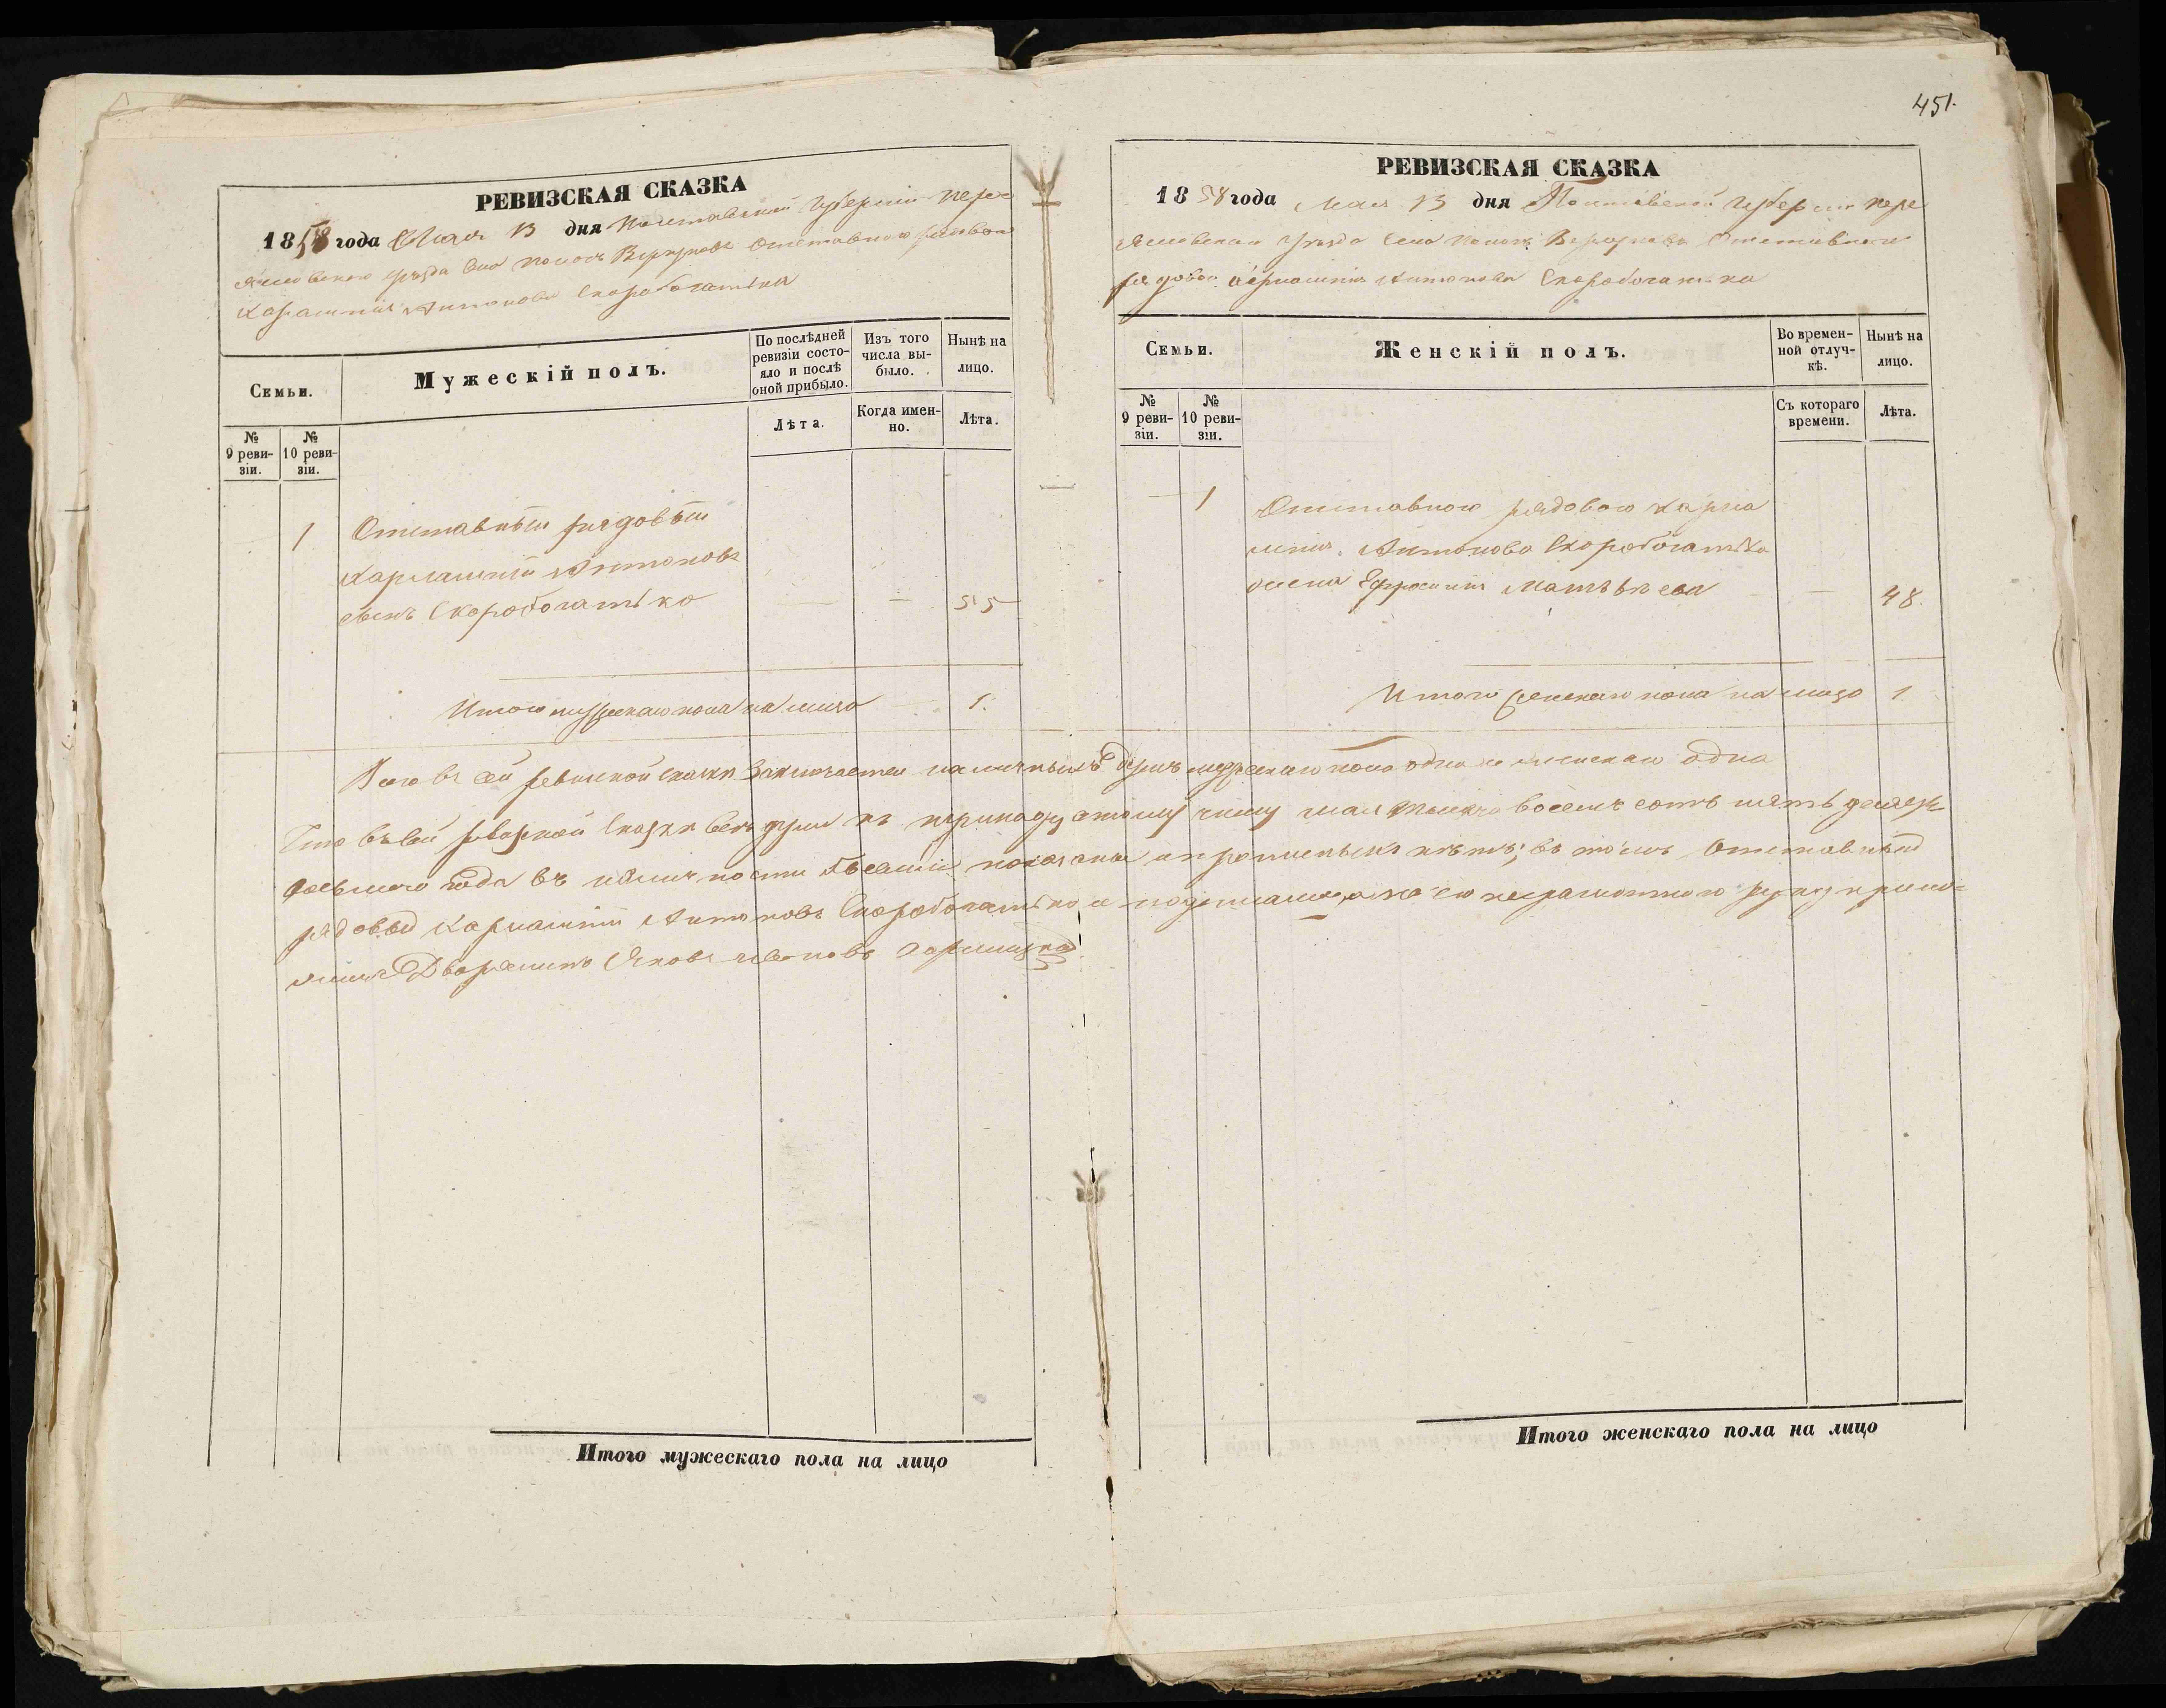 451.
РЕВИЗСКАЯ СКАЗКА
1858 года Мая 13 дня Полтавской Губернии Пере-
яславского уѣзда Села Отставного рядового
Антонова Скоробогатька
Семьи.
Мужескій полъ.
По послѣдней ревизіи состояло и послѣ оной прибыло.
Изъ того числа выбыло.
Нынѣ на лицо.
№ 9 ревизіи.
№ 10 ревизіи.
Лѣта.
Когда именно.
Лѣта.
1 Отставный рядовый
Антоновъ
сынъ Скоробогатько — — 55
Итого мужескаго пола на лицо 1.
РЕВИЗСКАЯ СКАЗКА
1858 года Мая 13 дня Полтавской Губернии Пере
яславскаго Уѣзда Села Отставнаго
рядоваго Антонова Скоробогатька
Семьи.
Женскій полъ.
Во временной отлучкѣ.
Нынѣ на лицо.
№ 9 ревизіи.
№ 10 ревизіи.
Съ котораго времени.
Лѣта.
— 1 Отставного рядового
Антонова Скоробогатька
жена Ефросинія Матвѣева — 48.
Итого женскаго пола на лицо 1
Всего въ сей ревизской сказкѣ заключается наличныхъ душъ мужескаго пола одна и женскаго одна
Что въ сей ревизской сказкѣ всѣ души къ тринадцатому числу мая тысяча восемь сотъ пятьдесятъ
осьмого года въ наличности показаны и прописныхъ нѣтъ; въ томъ Отставный
рядовый Антоновъ Скоробогатько а его неграмотного руку прило-
жилъ Дворянинъ Яковъ Ивановъ
Итого мужескаго пола на лицо
Итого женскаго пола на лицо